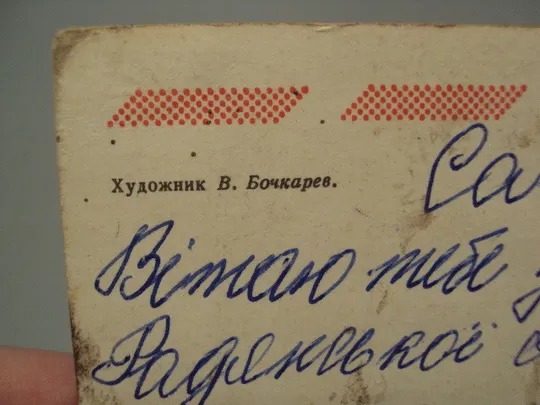 Художник В. Бочкарев.
Са
Вітаю тебе
Радянської